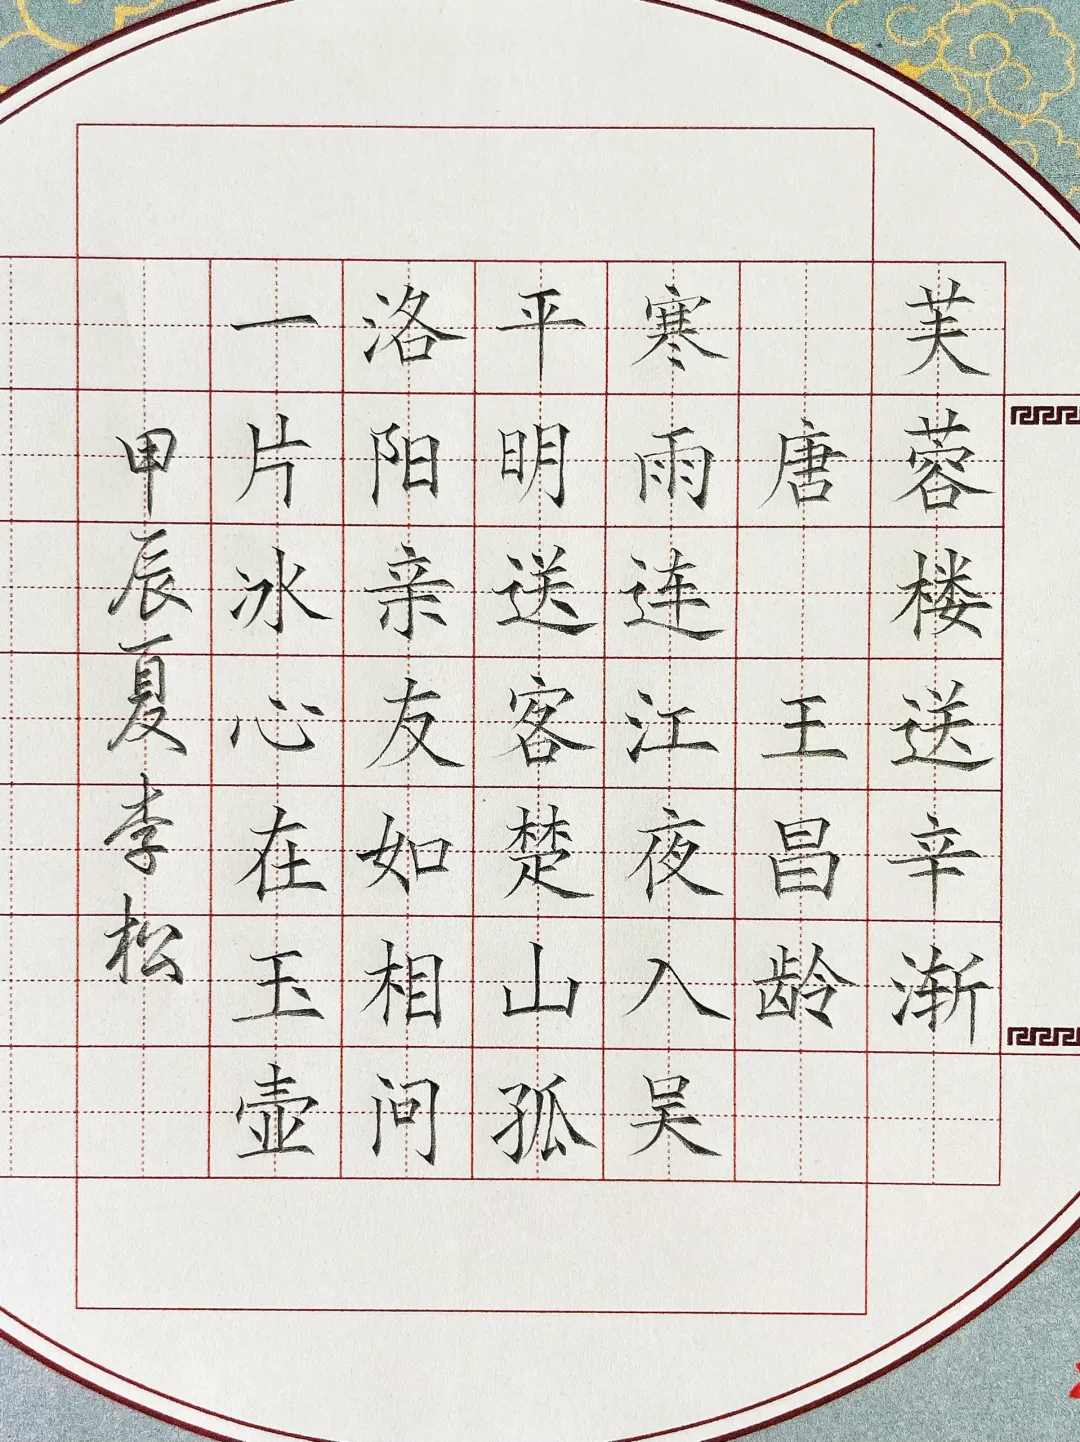 芙蓉楼送辛渐
唐 王昌龄
寒雨连江夜入吴
平明送客楚山孤
洛阳亲友如相问
一片冰心在玉壶
甲辰夏李松